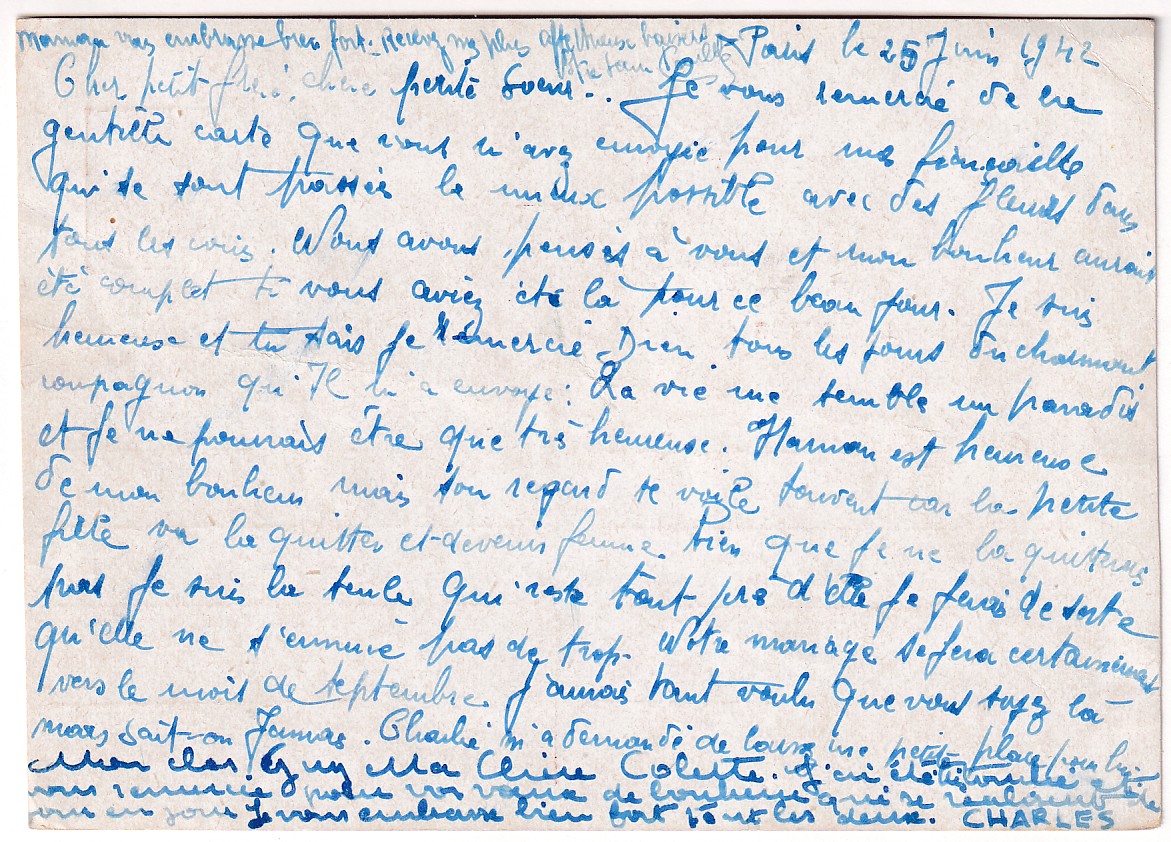 Maman vous embrasse bien fort. Recevez mes plus affectueux baisers
Paris le 25 Juin 1942
Cher petit frère, chère petite Soeur.. Je vous remercie de la
gentille carte que vous m'avez envoyie pour mes fiancaille
qui se sont passées le mieux possible avec des fleurs dans
tous les coins. Nous avons pensés à vous et mon bonheur aurais
été complet si vous aviez été là pour ce beau jour. Je suis
heureuse et tu sais je remercie Dieu tous les jours du charmant
compagnon qu'Il m'a envoyé: La vie me semble un paradis
et je ne pourrais être que très heureuse. Maman est heureuse
de mon bonheur mais son regard se voile souvent car la petite
fille va la quitter et devenir femme. Bien que je ne la quitterais
pas je suis la seule qui reste tout prè d'elle je ferais de sorte
qu'elle ne s'ennuie pas de trop. Notre mariage se fera certainement
vers le mois de septembre. J'aurais tant voulu que vous soyez là
mais sait-on Jamais. Charlie m'a demandé de laisser une petite place pour lui.
Mon cher Guy Ma Chère Colette. J'ai été très touché et je
vous remercie pour vos voeux de bonheur qui se réaliseront
un jour Je vous embrasse bien fort tout les deux. CHARLES